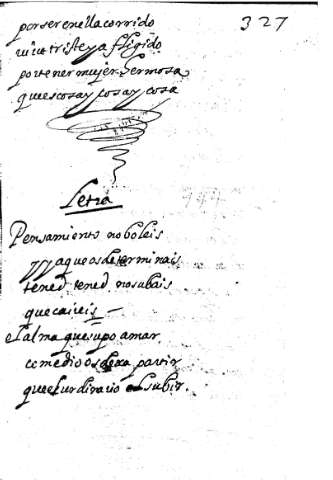 327
por ser en ella corrido
vive triste y afligido
por tener mujer hermosa
que es cosa y cosa y cosa
Letra
Pensamiento no boleis
y ya que os determinais
tened tened no subais
que caireis
el alma que supo amar
os dexa partir
que el
subir.